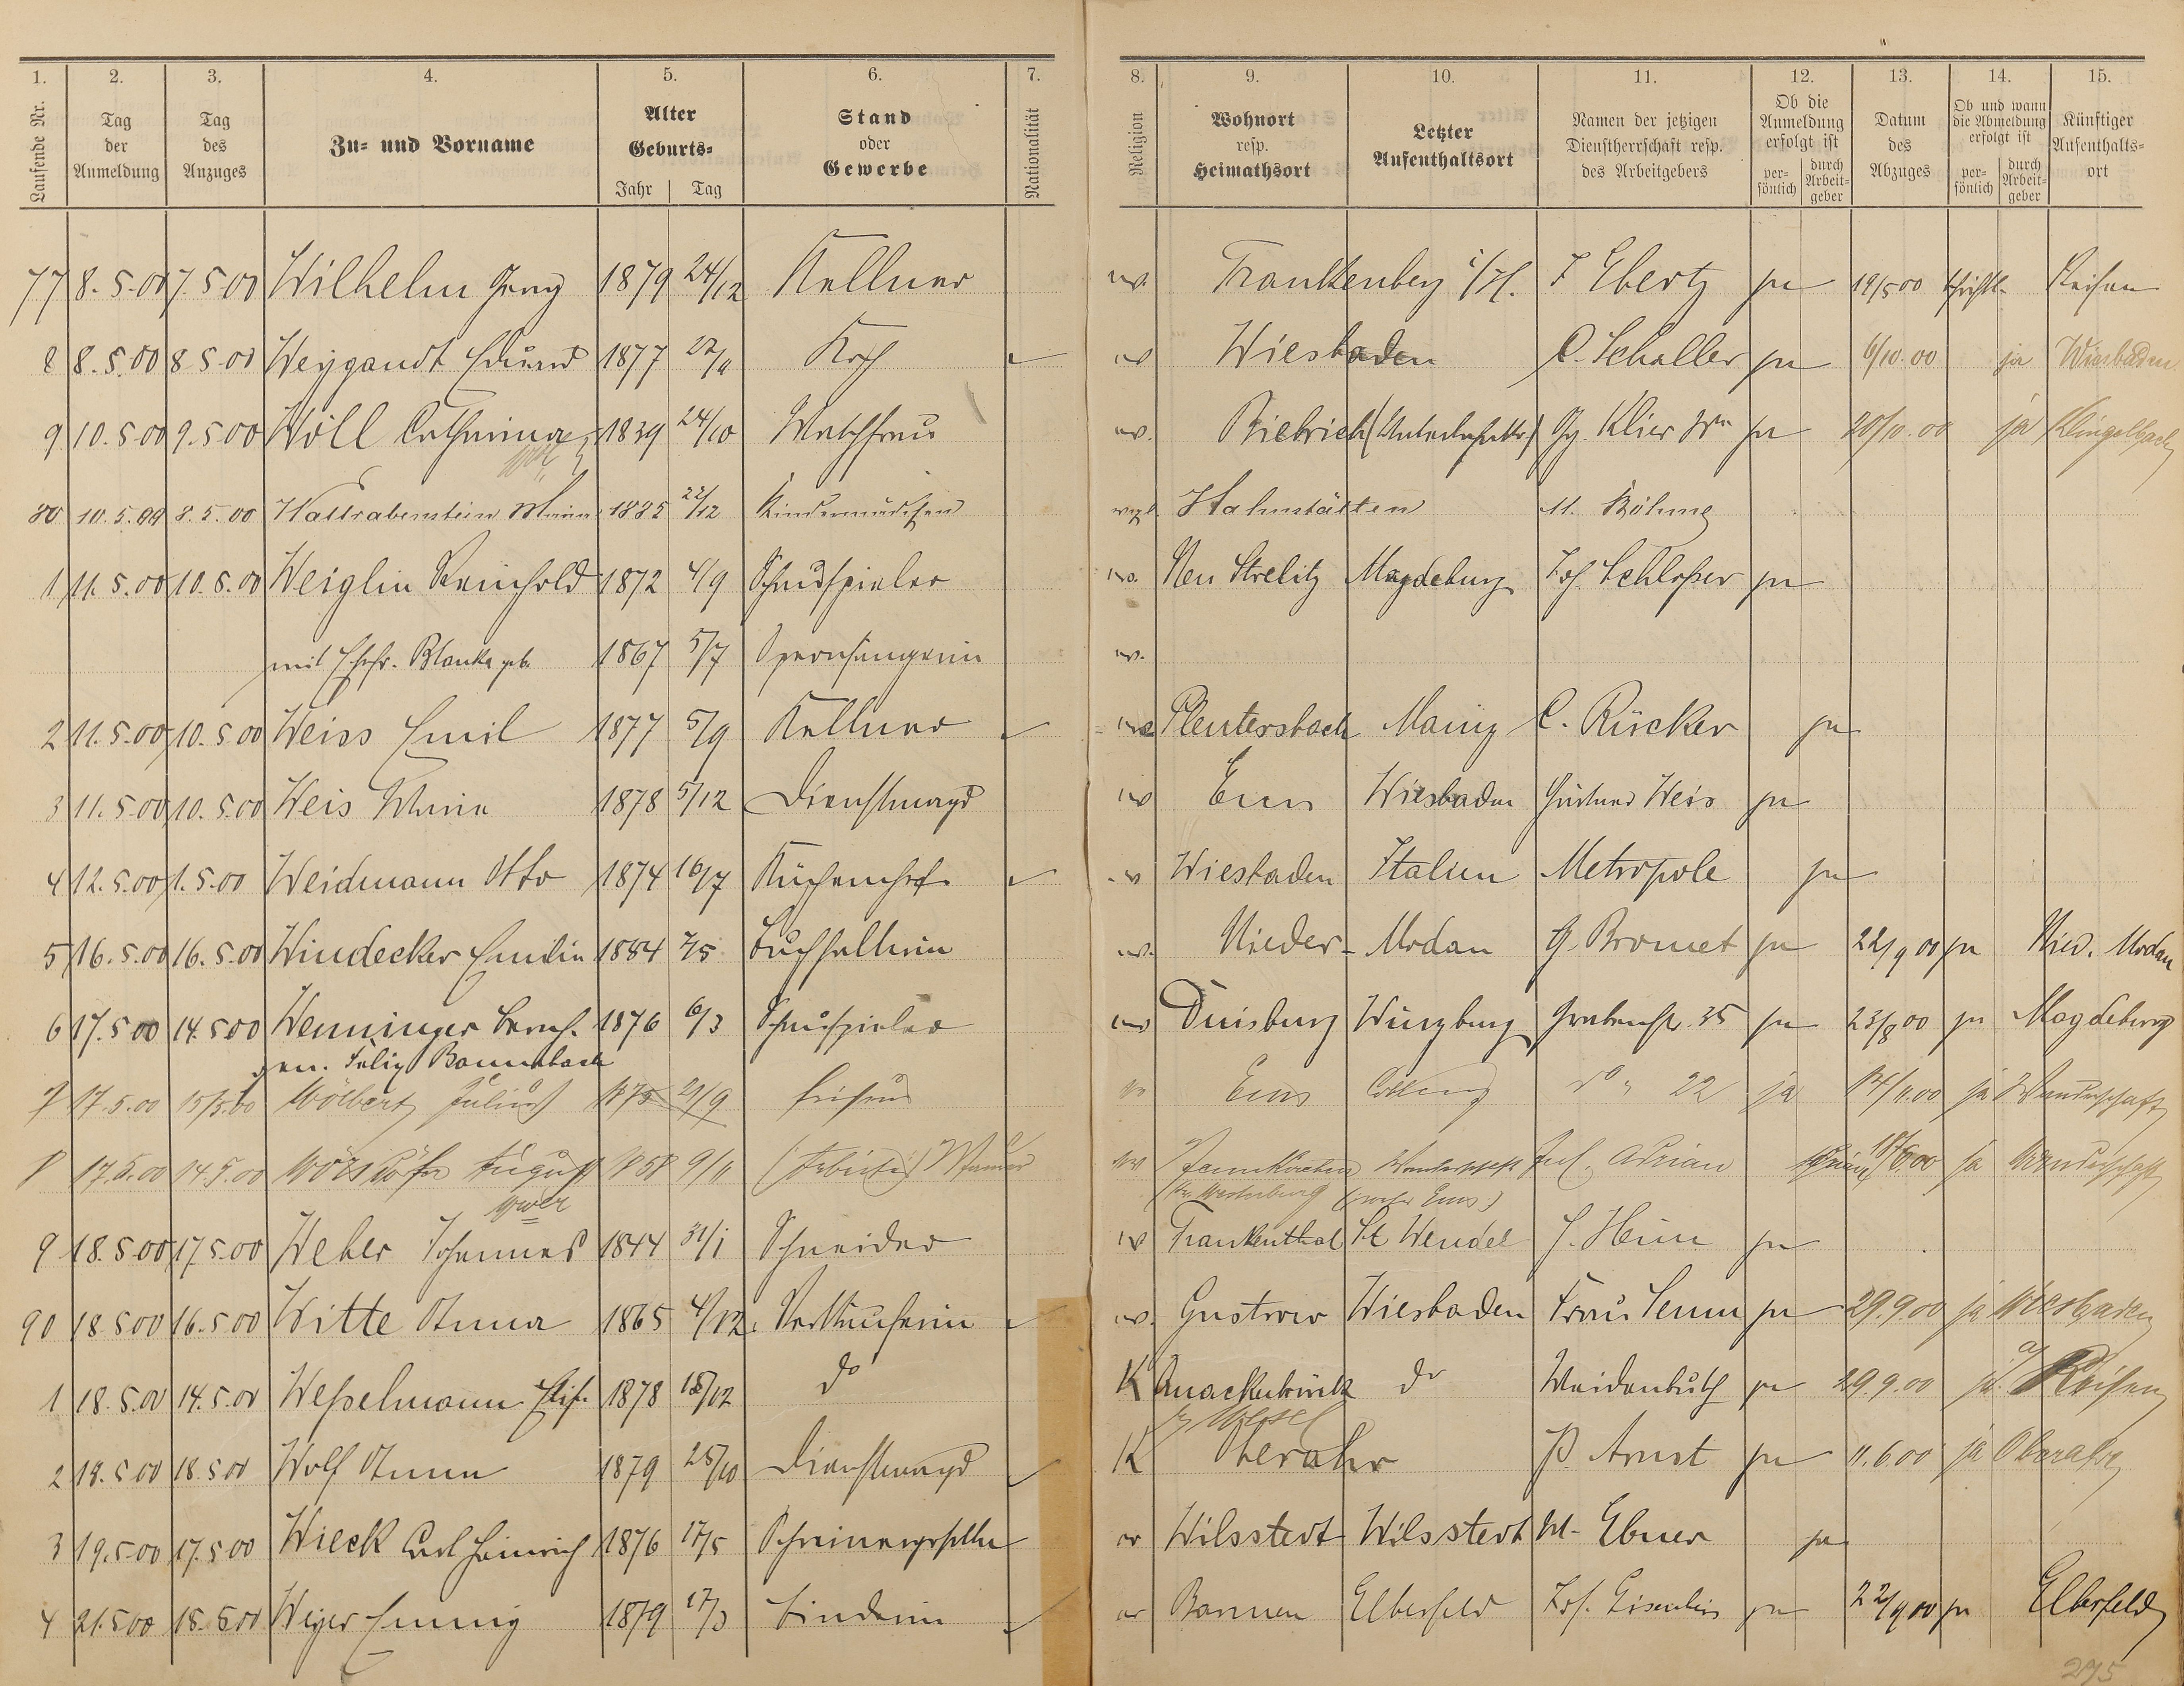 1. 2. 3. 4. 5. 6. 7. 8. 9. 10. 11. 12. 13. 14. 15.
Laufende Nr. Tag der Anmeldung Tag des Anzuges Zu- und Vorname Alter Geburts- Jahr Tag Stand oder Gewerbe Nationalität Religion Wohnort resp. Heimathsort Letzter Aufenthaltsort Namen der jetzigen Dienstherrschaft resp. des Arbeitgebers Ob die Anmeldung erfolgt ist persönlich durch Arbeitgeber Datum des Abzuges Ob und wann die Abmeldung erfolgt ist persönlich durch Arbeitgeber Künftiger Aufenthaltsort
77 8.5.00 7.5.00 Wilhelm Georg 1879 24/12 Kellner ev. Frankenberg i/H. F Ebertz ja 19/5 00 schriftl. Reisen
8 8.5.00 8 5.00 Weygandt Eduard 1877 Koch ev Wiesbaden C. Schaller ja 6/10.00 ja Wiesbaden
9 10.5.00 9.5.00 Wöll Catharina 1839 24/10 Waschfrau ev. Biebrich Gg. Klier Ww ja 20/10.00 ja Klingelbach
80 10.5.00 8.5.00 Hattrabenstein Maria 22/12 Kindermädchen evgl. Hahnstätten M. Böhme
1 11.5.00 10.5.00 Weiglin Reinhold 1872 4/9 Schauspieler ev. Neu Strelitz Magdeburg Jos. Schlosser ja
mit Ehefr. Blanka geb. 1867 5/7 Opernsängerin ev.
2 11.5.00 10.5.00 Weiss Emil 1877 5/9 Kellner ev Pleutersbach Mainz C. Rücker ja
3 11.5.00 10.5.00 Weis Maria 1878 5/12 Dienstmagd ev Ems Wiesbaden Gärtner Weis ja
4 12.5.00 1.5.00 Weidmann Otto 1874 16/7 Küchenchef ev Wiesbaden Italien Metropole ja
5 16.5.00 16.5.00 Windecker Emilie 1884 7/5 Buchhalterin ev. Nieder-Modau G. Bromet ja 22/9 00 ja Nied. Modau
6 17.5 00 14.5 00 Wenninger Bernh. 1876 6/3 Schauspieler ev Duisburg Würzburg Grabenstr. 35 ja 23/8 00 ja Magdeburg
gen. Felix Bonnabach
7 17.5.00 15/5.00 Wölbert Julius 1875 21/9 Friseur ev Ems Coblenz do " 22 ja 14/11.00 ja Wanderschaft
8 17.5.00 14.5.00 August 1858 9/11 (Arbeiter) ev Jos. Adrian 18/6.00 ja Wanderschaft
(Kr. Westerburg (vorher Ems)
9 18.5.00 17 5.00 Weber Johannes 1844 31/1 Schneider ev Frankenthal St Wendel J. Heun ja
90 18 5 00 16.5 00 Witte Anna 1865 4/12. Verkäuferin ev. Gustrow Wiesbaden Frau Senn ja 29.9.00 ja Wiesbaden
1 18.5.00 14.5.00 Wesselmann Elis. 1878 18/12 do K Quackenbrück do Weidenbusch ja 29.9.00 ja a/ Reisen
2 18.5 00 18.5 00 Wolf Anna 1879 25/10 Dienstmagd K Oberahr P. Arnst ja 11.6.00 ja Oberahr
3 19.5 00 17.5 00 Wieck Carl Heinrich 1876 17/5 Schreinergeselle ev Wilsstedt Wilsstedt W. Ebner ja
4 21.5 00 18.5 00 Weyer Emmy 1879 17/3 Binderin ev Barmen Elberfeld Jos. ja 22/9 00 ja Elberfeld
275